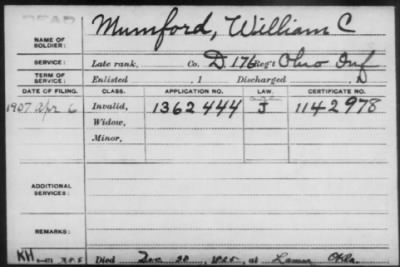 DEAD
NAME OF SOLDIER: Mumford, William C
SERVICE: Late rank, Co. D 176 Reg't Ohio Inf
TERM OF SERVICE: Enlisted , 1 Discharged , 1
DATE OF FILING. CLASS. APPLICATION NO. LAW. CERTIFICATE NO.
1907 Apr 6 Invalid, 1362444 age J 1142978
Widow,
Minor,
ADDITIONAL SERVICES:
REMARKS:
KH Died Dec 1925, at Lamar Okla.